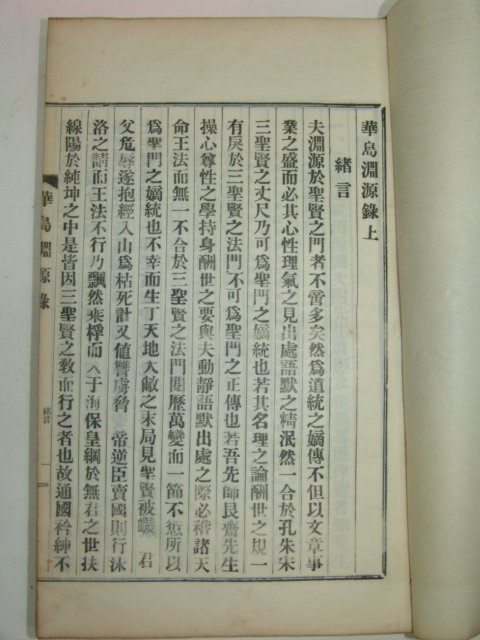 華島淵源錄上
緒言
夫淵源於聖賢之門者不啻多矣然爲道統之嫡傳不但以文章事
業之盛而必其心性理氣之見出處語默之精泯然一合於孔朱宋
三聖賢之丈尺乃可爲聖門之嫡統也若其名理之論酬世之規一
有戾於三聖賢之法門不可爲聖門之正傳也若吾先師艮齋先生
操心尊性之學持身酬世之要與夫動靜語默出處之際必稽諸天
命王法而無一不合於三聖賢之法門閱歷萬變而一節不愆所以
爲聖門之嫡統也不幸而生丁天地大敵之末局見聖賢被
君
父危辱遂抱經入山爲枯死計又値讐虜脅
帝逆臣賣國則行沐
洛之請而王法不行乃飄然乘桴而入于海保皇綱於無君之世扶
線陽於純坤之中是皆因三聖賢之敎而行之者也故通國衿紳不
華島源錄
緒言
一